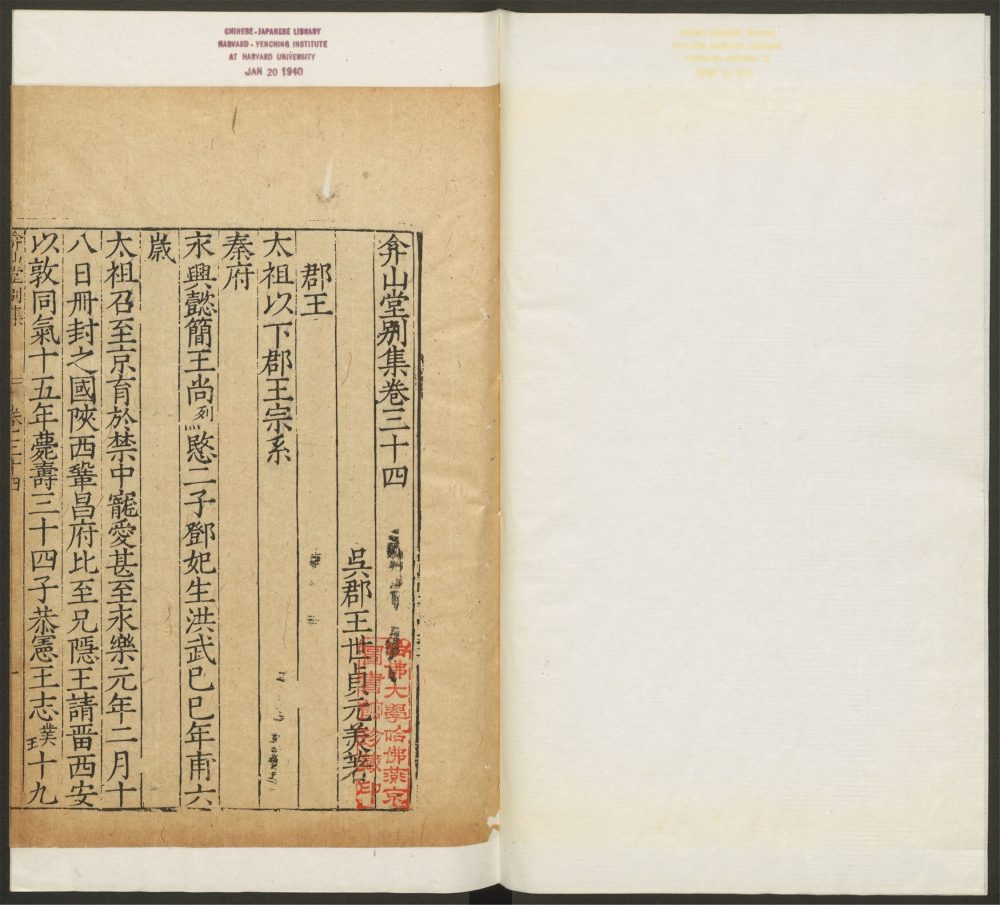 CHINESE-JAPANESE LIBRARY
HARVARD-YENCHING INSTITUTE
AT HARVARD UNIVERSITY
JAN 20 1940
弇山堂别集卷三十四
吳郡王世貞元美著
郡王
太祖以下郡王宗系
秦府
永興懿簡王尚烈愍二子鄧妃生洪武己巳年甫六
歲
太祖召至京育於禁中寵愛甚至永樂元年二月十
八日冊封之國陝西鞏昌府比至兄隱王請畱西安
以敦同氣十五年薨壽三十四子恭憲王志璞十九
弇山堂别集
卷三十四
一
哈佛大學哈佛燕京
圖書館珍藏印